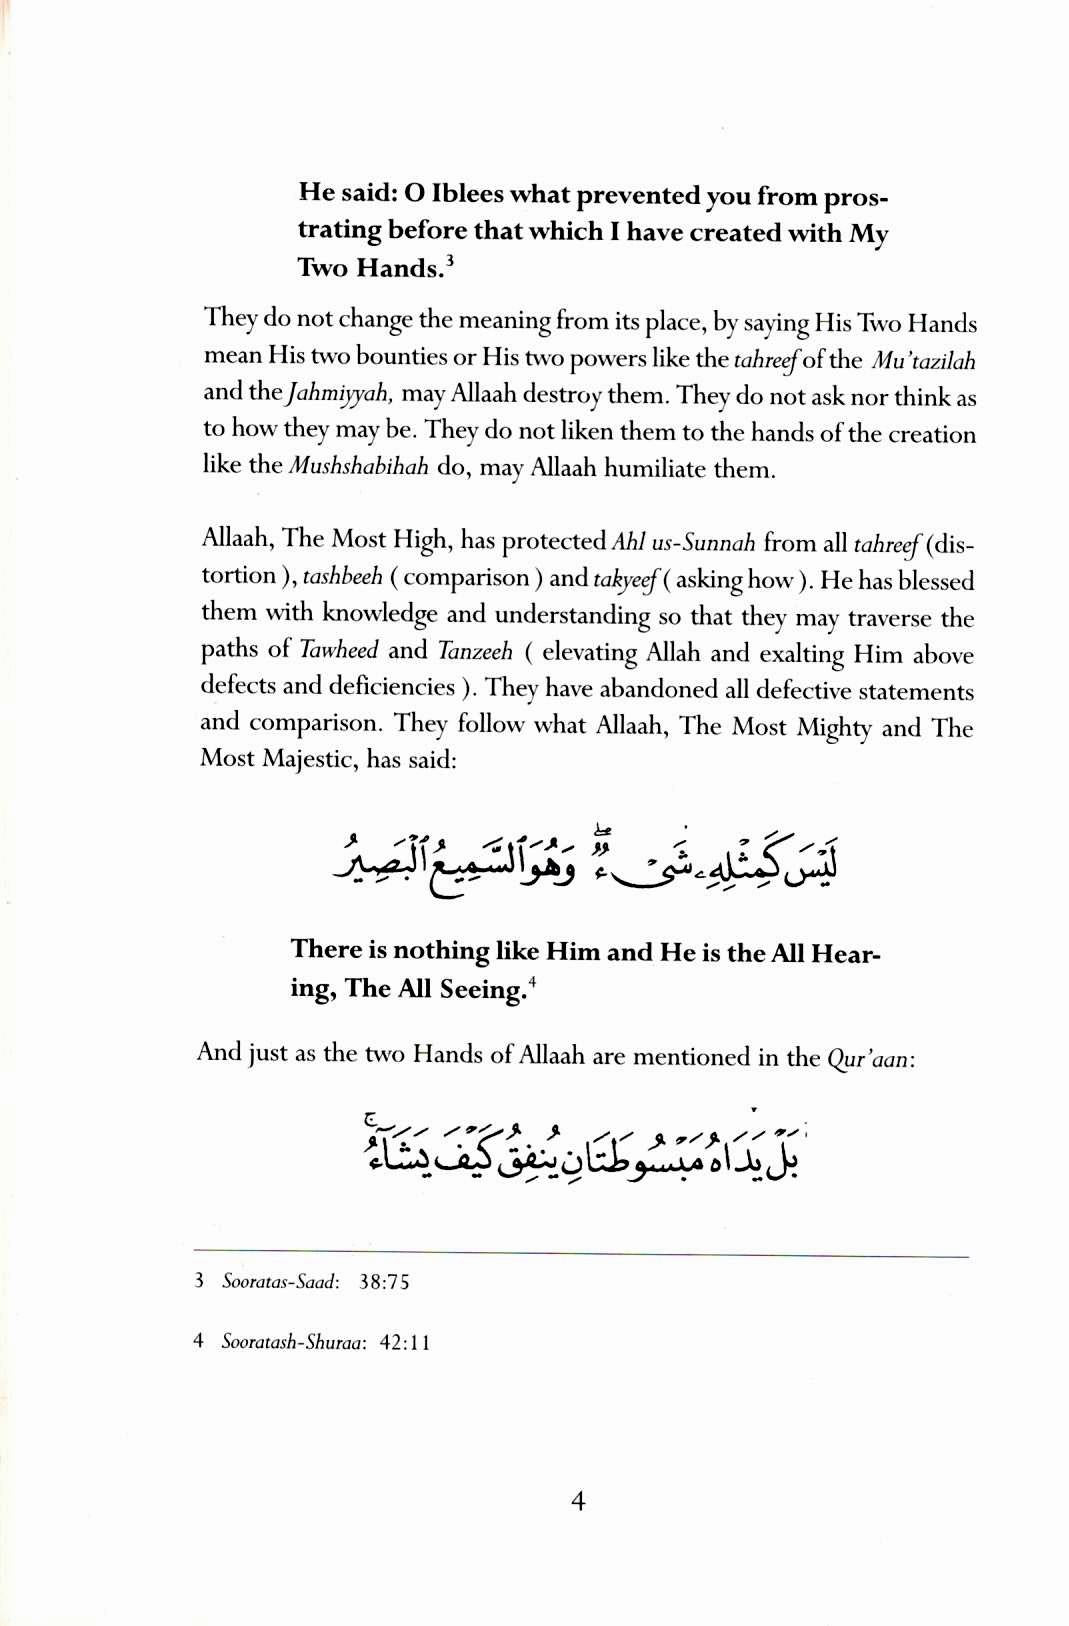 He said: O Iblees what prevented you from pros-
trating before that which I have created with My
Two Hands.³
They do not change the meaning from its place, by saying His Two Hands
mean His two bounties or His two powers like the tahreef of the Mu'tazilah
and the Jahmiyyah, may Allaah destroy them. They do not ask nor think as
to how they may be. They do not liken them to the hands of the creation
like the Mushshabihah do, may Allaah humiliate them.
Allaah, The Most High, has protected Ahl us-Sunnah from all tahreef (dis-
tortion ), tashbeeh ( comparison ) and takyeef ( asking how ). He has blessed
them with knowledge and understanding so that they may traverse the
paths of Tawheed and Tanzeeh ( elevating Allah and exalting Him above
defects and deficiencies ). They have abandoned all defective statements
and comparison. They follow what Allaah, The Most Mighty and The
Most Majestic, has said:
لَيْسَ كَمِثْلِهِۦ شَىْءٌ ۖ وَهُوَ ٱلسَّمِيعُ ٱلْبَصِيرُ
There is nothing like Him and He is the All Hear-
ing, The All Seeing.⁴
And just as the two Hands of Allaah are mentioned in the Qur'aan:
بَلْ يَدَاهُ مَبْسُوطَتَانِ يُنفِقُ كَيْفَ يَشَآءُ ۚ
3 Sooratas-Saad: 38:75
4 Sooratash-Shuraa: 42:11
4